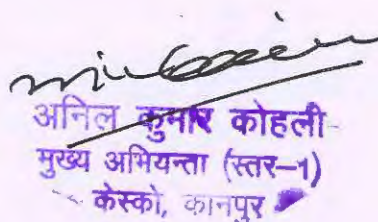 अनिल कुमार कोहली
मुख्य अभियन्ता (स्तर–1)
केस्को, कानपुर